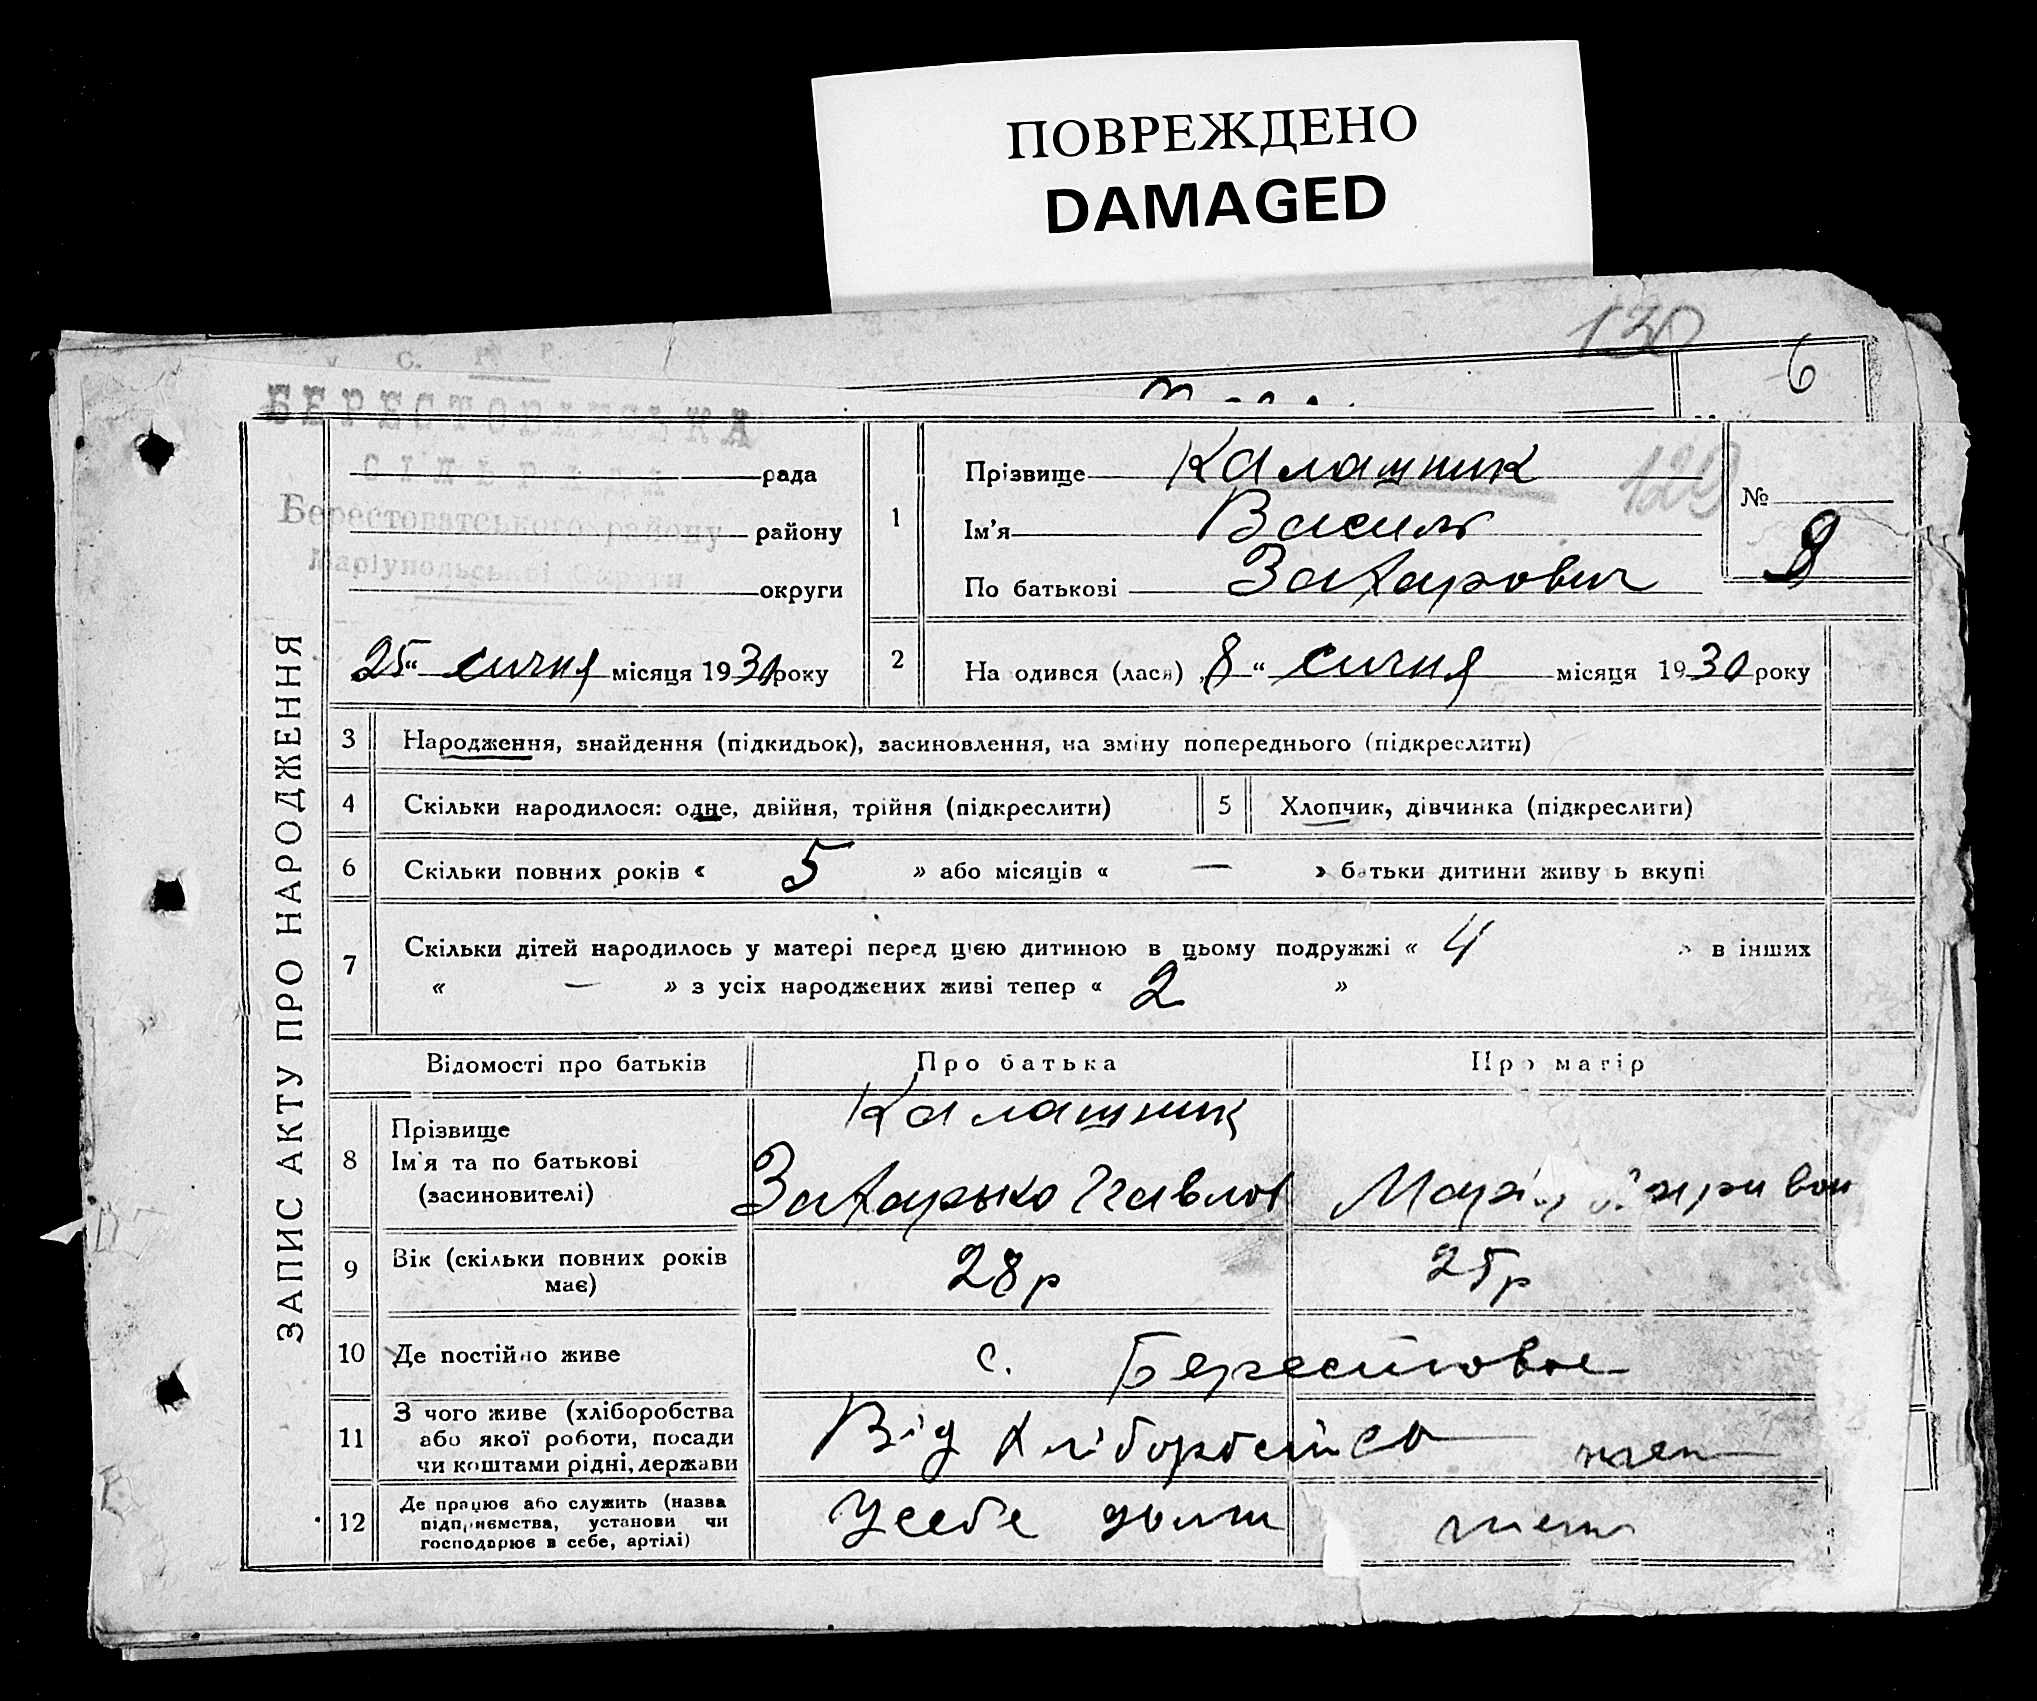 ПОВРЕЖДЕНО
DAMAGED
130
6
У С Р Р.
БЕРЕСТОВАТСЬКА
СІЛЬРАДА
Берестоватського району
Маріупольської округи
рада
району
округи
„25“ січня місяця 1930 року
ЗАПИС АКТУ ПРО НАРОДЖЕННЯ
1
Прізвище Калашник
129
Ім'я Василь
По батькові Захарович
№ 8
2
На одився (лася) „8“ січня місяця 1930 року
3 Народження, знайдення (підкидьок), засиновлення, на зміну попереднього (підкреслити)
4 Скільки народилося: одне, двійня, трійня (підкреслити)
5 Хлопчик, дівчинка (підкреслити)
6 Скільки повних років « 5 » або місяців « — » батьки дитини живу ь вкупі
7 Скільки дітей народилось у матері перед цією дитиною в цьому подружжі « 4 » в інших
« — » з усіх народжених живі тепер « 2 »
Відомості про батьків
Про батька
Про матір
8 Прізвище
Ім'я та по батькові
(засиновителі)
Калашник
Захарько Павлов
Марія
9 Вік (скільки повних років
має)
28р
25р
10 Де постійно живе
с. Берестовое
11 З чого живе (хліборобства
або якої роботи, посади
чи коштами рідні, держави
Від хліборобства
12 Де працює або служить (назва
підприємства, установи чи
господарює в себе, артілі)
У себе дома